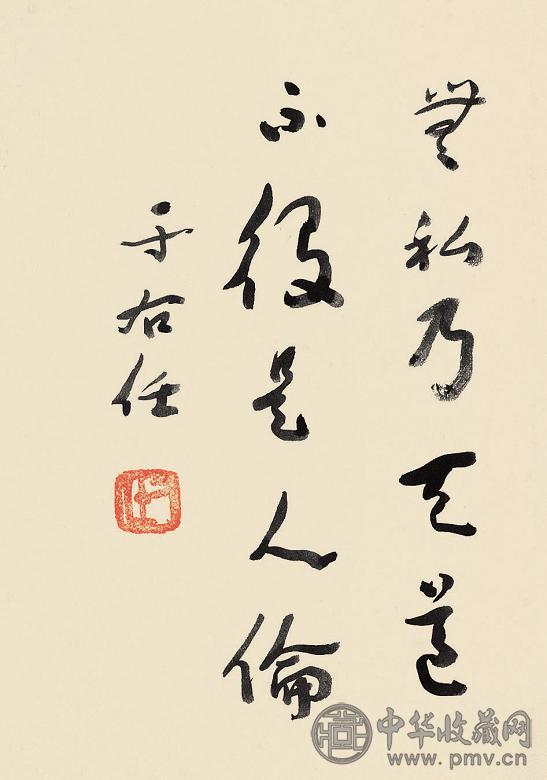 無私乃天道
不役是人倫
于右任
中华收藏网
www.pmv.cn